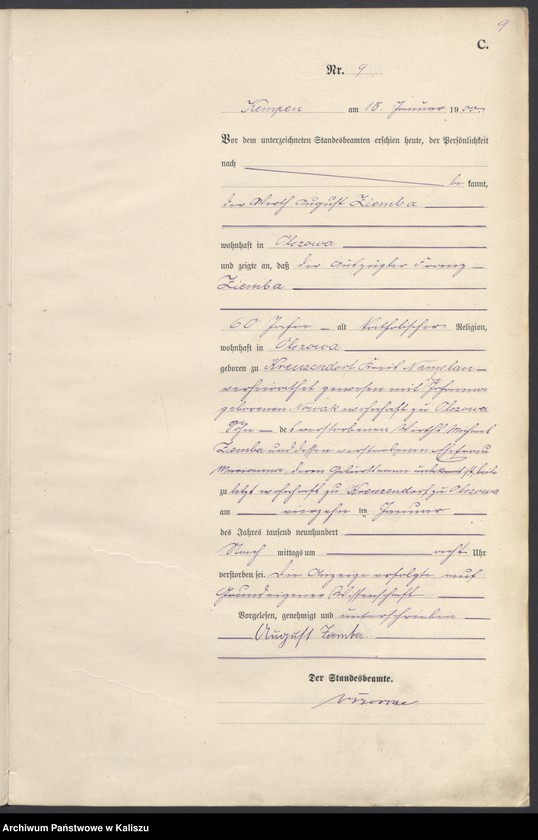 9
C.
Nr. 9
Kempen am 15. Januar 1900.
Vor dem unterzeichneten Standesbeamten erschien heute, der Persönlichkeit
nach
bekannt,
der Wirth August Ziemba
wohnhaft in Olszowa
und zeigte an, daß der Auszügler Franz
Ziemba
60 Jahre alt katholischer Religion,
wohnhaft in Olszowa
geboren zu Kreuzendorf Kreis Namslau
verheirathet gewesen mit
geborenen Nowak wohnhaft zu Olszowa
Sohn des verstorbenen Wirths
Ziemba und dessen verstorbenen Ehefrau
Marianna, deren Geburtsname unbekannt ist, beide
zuletzt wohnhaft zu Kreuzendorf zu Olszowa
am vierzehnten Januar
des Jahres tausend neunhundert
Nachmittags um acht Uhr
verstorben sei. Die Anzeige erfolgte auf
Grund eigener Wissenschaft
Vorgelesen, genehmigt und unterschrieben
August
Der Standesbeamte.
Archiwum Państwowe w Kaliszu